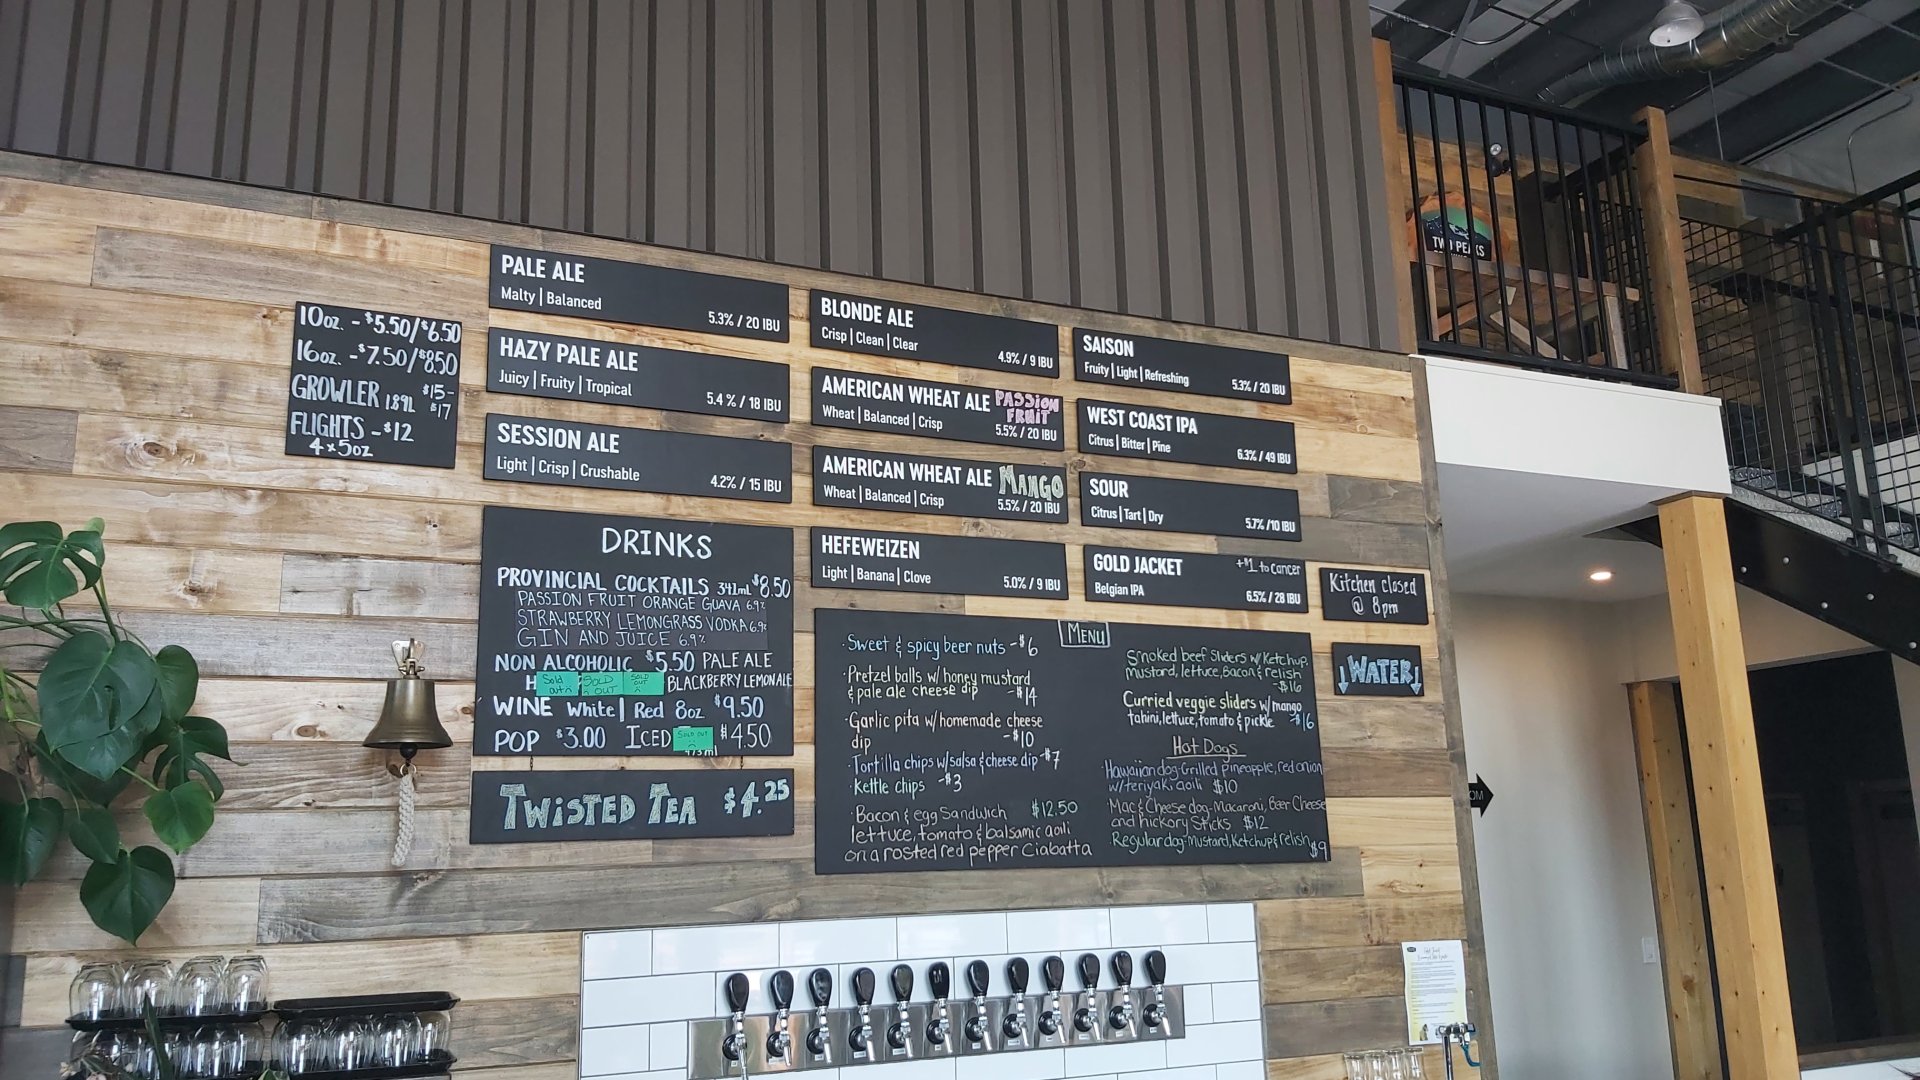 10oz. - $5.50/$6.50
16oz. - $7.50/$8.50
GROWLER 1.89L $15-
$17
FLIGHTS - $12
4 x 5oz
PALE ALE
Malty | Balanced
5.3% / 20 IBU
HAZY PALE ALE
Juicy | Fruity | Tropical
5.4 % / 18 IBU
SESSION ALE
Light | Crisp | Crushable
4.2% / 15 IBU
BLONDE ALE
Crisp | Clean | Clear
4.9% / 9 IBU
AMERICAN WHEAT ALE PASSION
FRUIT
Wheat | Balanced | Crisp
5.5% / 20 IBU
AMERICAN WHEAT ALE MANGO
Wheat | Balanced | Crisp
5.5% / 20 IBU
HEFEWEIZEN
Light | Banana | Clove
5.0% / 9 IBU
SAISON
Fruity | Light | Refreshing
5.3% / 20 IBU
WEST COAST IPA
Citrus | Bitter | Pine
6.3% / 49 IBU
SOUR
Citrus | Tart | Dry
5.7% / 10 IBU
GOLD JACKET +$1 to cancer
Belgian IPA
6.5% / 28 IBU
DRINKS
PROVINCIAL COCKTAILS 341mL $8.50
PASSION FRUIT ORANGE GUAVA 6.9%
STRAWBERRY LEMONGRASS VODKA 6.9%
GIN AND JUICE 6.9%
NON ALCOHOLIC $5.50 PALE ALE
H Sold out SOLD OUT SOLD OUT BLACKBERRY LEMONALE
WINE White | Red 8oz $9.50
POP $3.00 ICED SOLD OUT $4.50
473ml
TWISTED TEA $4.25
MENU
·Sweet & spicy beer nuts - $6
·Pretzel balls w/ honey mustard
& pale ale cheese dip - $14
·Garlic pita w/ homemade cheese
dip - $10
·Tortilla chips w/salsa & cheese dip - $7
·Kettle chips - $3
·Bacon & egg Sandwich $12.50
lettuce, tomato & balsamic aoili
on a rosted red pepper Ciabatta
Smoked beef Sliders w/ Ketchup,
mustard, lettuce, Bacon & relish
- $16
Curried veggie sliders w/ mango
tahini, lettuce, tomato & pickle - $16
Hot Dogs
·Hawaiian dog-Grilled pineapple, red onion
w/ teriyaki aoili $10
·Mac & Cheese dog-Macaroni, Beer Cheese
and hickory Sticks $12
·Regular dog-Mustard, Ketchup & relish $9
Kitchen closed
@ 8pm
↓WATER↓
TWO PEAKS
OM